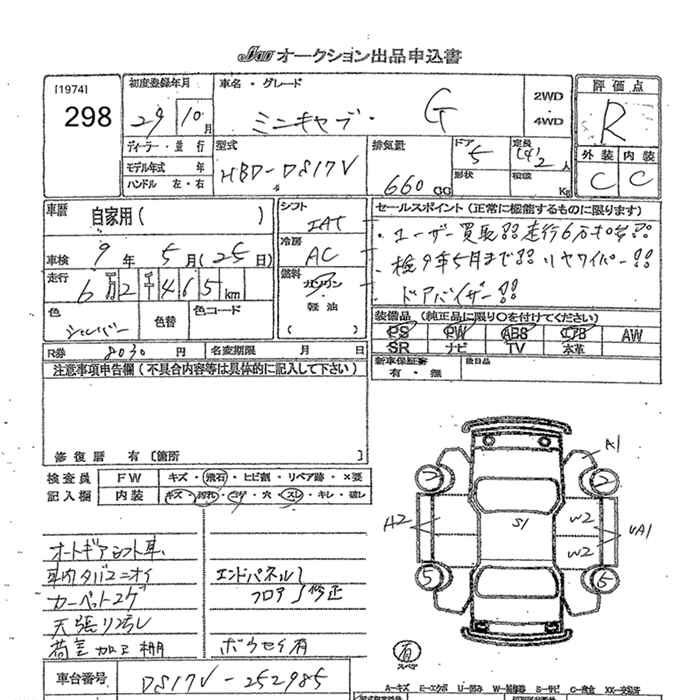 JAA オークション出品申込書
[1974]
298
初度登録年月
29 10 月
車名・グレード
ミニキャブ・ G
2WD
4WD
評価点
R
外装 内装
C C
ディーラー・並行
モデル年式 年
ハンドル 左・右
型式
HBD-DS17V
排気量
660 CC
ドア
5
形状
定員
(4)2人
積載
Kg
車歴
自家用( )
車検 9年 5月(25日)
走行
6万2千465km
色
シルバー
色替
色コード
シフト
IAT
冷房
AC
燃料
ガソリン
軽油
( )
セールスポイント(正常に機能するものに限ります)
・ユーザー買取!!走行6万キロ台!!
・検9年5月まで!!リヤワイパー!!
・ドアバイザー!!
装備品(純正品に限り○を付けてください)
PS PW ABS エアB AW
SR ナビ TV 本革
新車保証書
有・無
後日品
R券 8030 円
名変期限 月 日
注意事項申告欄(不具合内容等は具体的に記入して下さい)
修復歴 有〔箇所 〕
検査員
記入欄
FW キズ・飛石・ヒビ割・リペア跡・×要
内装 キズ・汚れ・コゲ・穴・スレ・キレ・破レ
オートギアシフト車、
車内タバコニオイ
カーペットコゲ
天張り汚し
荷室加工棚
エンドパネル
フロア 修正
ボウセイ有
A1
A2
S1
W2
W2
UA1
5
5
有
スペア
車台番号
DS17V-252985
A-キズ E-エクボ U-凹み W-補修跡 S-サビ C-腐食 XX-交換済